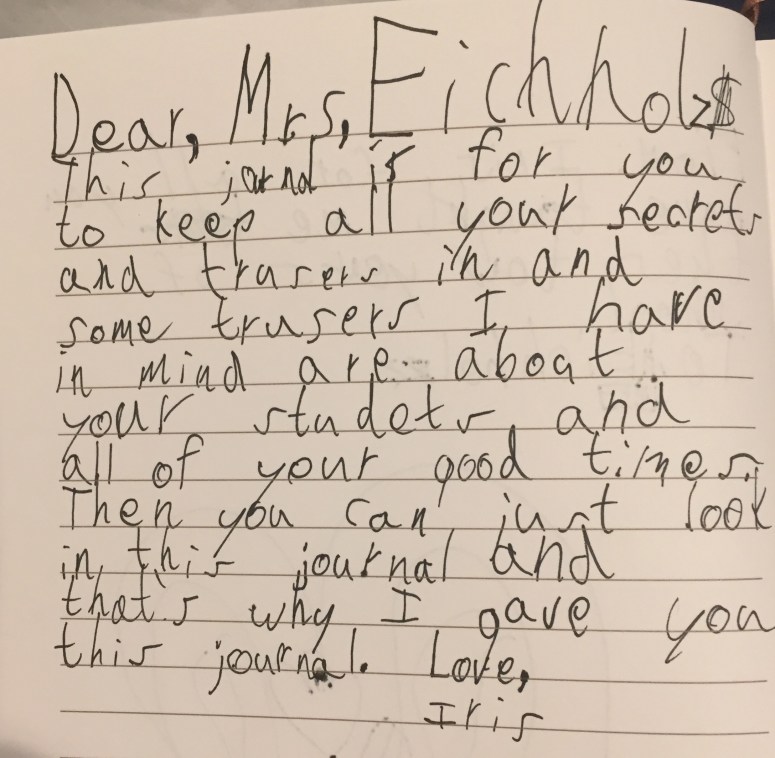 Dear, Mrs, Eichholz
This jornal is for you
to keep all your secrets
and trusers in and
some trusers I have
in mind are aboat
your studets and
all of your good times.
Then you can just look
in this journal and
that's why I gave you
this journal. Love,
Iris